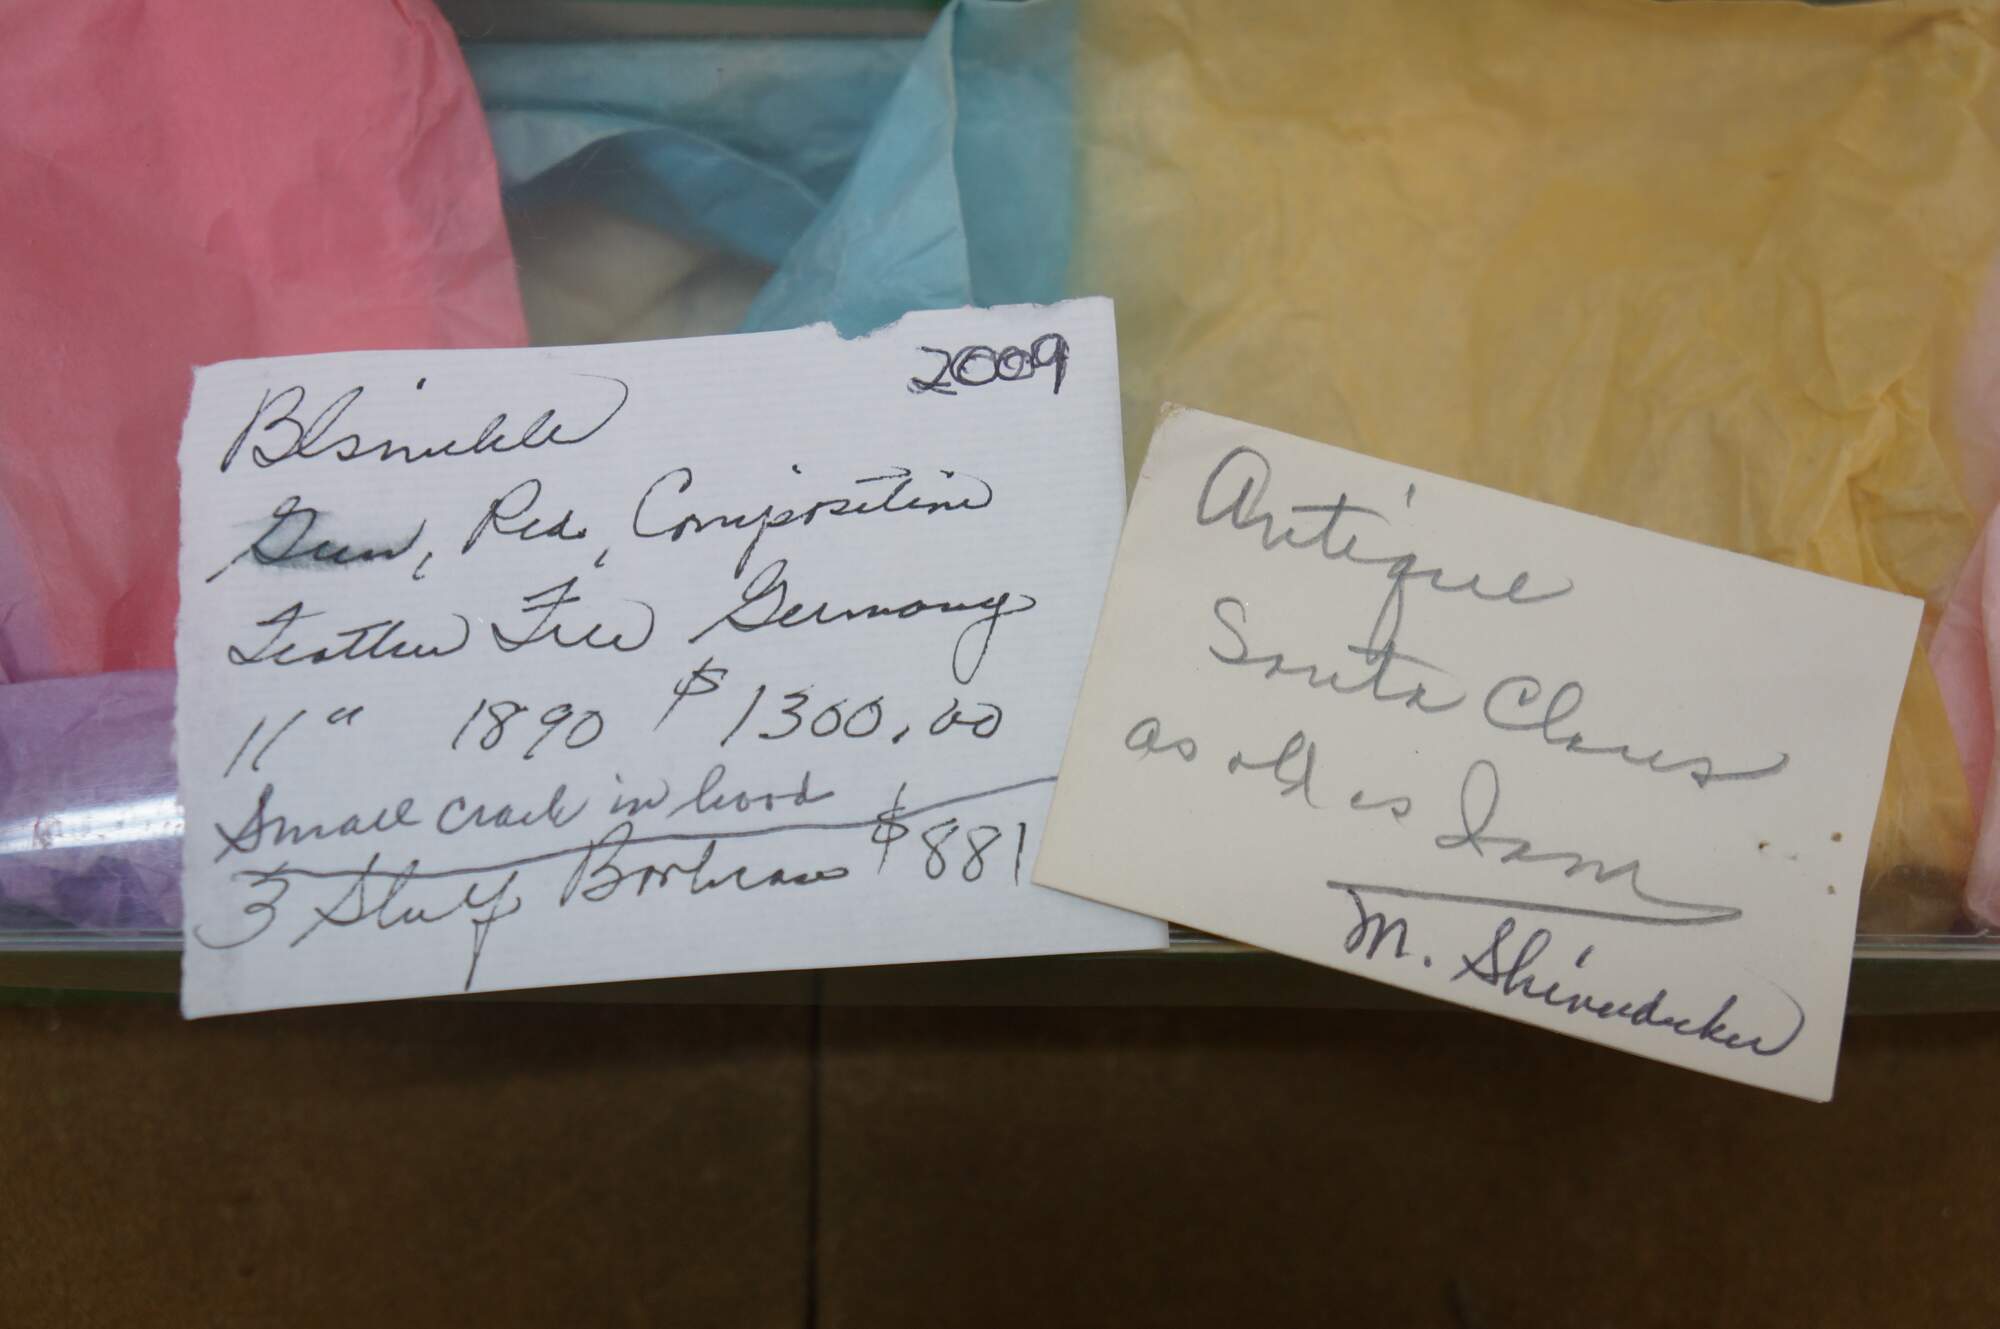 2009
Blsnickle
Green, Red, Composition
Feather Tree Germany
11" 1890 $1300.00
Small crack in hood
3 $881
Antique
Santa Claus
as old as I am
M. Shivedecker